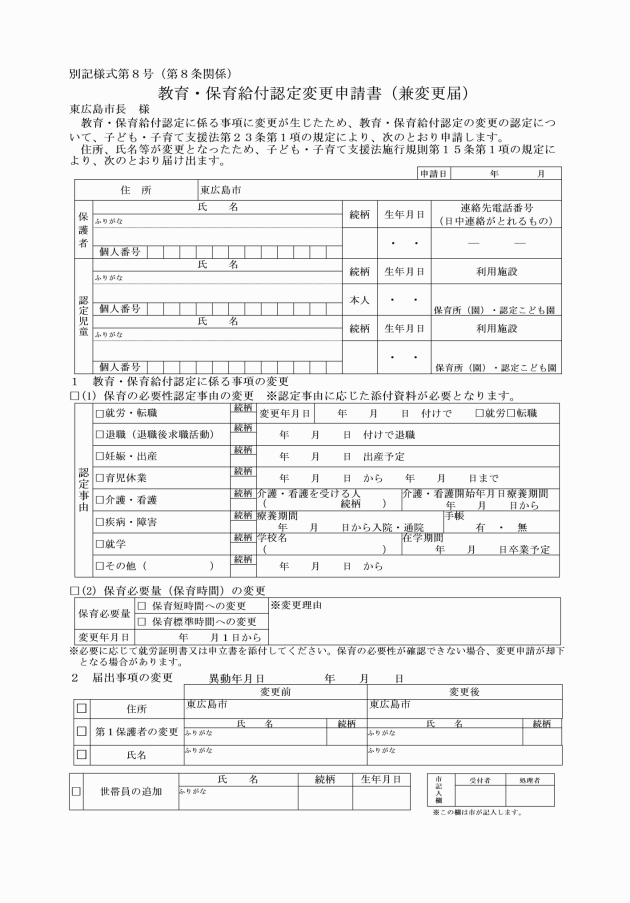 別記様式第８号（第８条関係）
教育・保育給付認定変更申請書（兼変更届）
東広島市長　様
教育・保育給付認定に係る事項に変更が生じたため、教育・保育給付認定の変更の認定につ
いて、子ども・子育て支援法第２３条第１項の規定により、次のとおり申請します。
住所、氏名等が変更となったため、子ども・子育て支援法施行規則第１５条第１項の規定に
より、次のとおり届け出ます。
申請日　年　月
住　所　東広島市
保護者
氏　名　続柄　生年月日　連絡先電話番号
（日中連絡がとれるもの）
ふりがな
・　・　―　―
個人番号
認定児童
氏　名　続柄　生年月日　利用施設
ふりがな
本人　・　・
個人番号　保育所（園）・認定こども園
氏　名　続柄　生年月日　利用施設
ふりがな
・　・
個人番号　保育所（園）・認定こども園
１　教育・保育給付認定に係る事項の変更
□(1) 保育の必要性認定事由の変更　※認定事由に応じた添付資料が必要となります。
認定事由
□就労・転職　続柄　変更年月日　年　月　日　付けで　□就労□転職
□退職（退職後求職活動）　続柄　年　月　日　付けで退職
□妊娠・出産　続柄　年　月　日　出産予定
□育児休業　続柄　年　月　日　から　年　月　日まで
□介護・看護　続柄　介護・看護を受ける人　介護・看護開始年月日療養期間
（　続柄　）　年　月　日から
□疾病・障害　続柄　療養期間　手帳
年　月　日から入院・通院　有　・　無
□就学　続柄　学校名　在学期間
（　）　年　月　日卒業予定
□その他（　）　続柄　年　月　日　から
□(2) 保育必要量（保育時間）の変更
保育必要量　□ 保育短時間への変更　※変更理由
□ 保育標準時間への変更
変更年月日　年　月１日から
※必要に応じて就労証明書又は申立書を添付してください。保育の必要性が確認できない場合、変更申請が却下
となる場合があります。
２　届出事項の変更　異動年月日　年　月　日
変更前　変更後
□　住所　東広島市　東広島市
□　第１保護者の変更　氏　名　続柄　氏　名　続柄
ふりがな　ふりがな
□　氏名　ふりがな　ふりがな
□　世帯員の追加　氏　名　続柄　生年月日
ふりがな
市記入欄　受付者　処理者
※この欄は市が記入します。